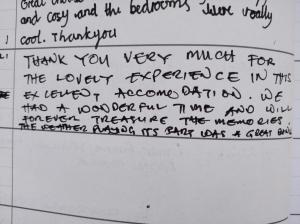 Great
and cosy and the bedrooms were really
cool. Thankyou
THANK YOU VERY MUCH FOR
THE LOVELY EXPERIENCE IN THIS
EXCELLENT ACCOMODATION. WE
HAD A WONDERFUL TIME AND WILL
FOREVER TREASURE THE MEMORIES.
THE WEATHER PLAYING ITS PART WAS A GREAT